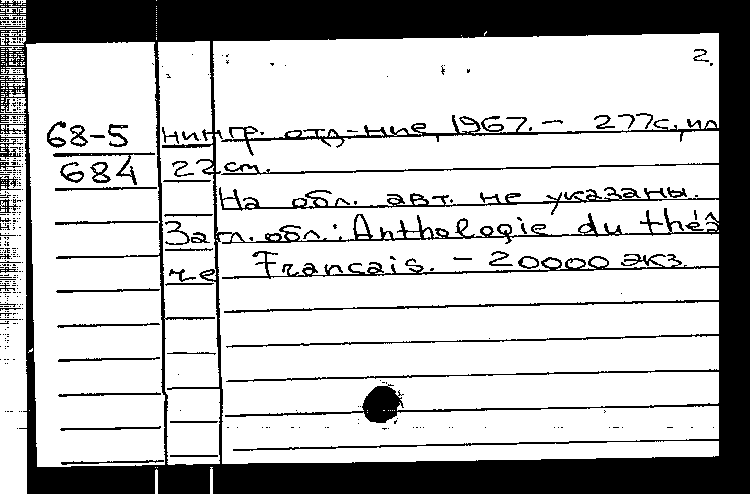 2.
68-5 нингр. отд-ние, 1967. - 277с., ил
684 22 см.
На обл. авт. не указаны.
Загл. обл.: Anthologie du théâ
tre Francais. - 20000 экз.